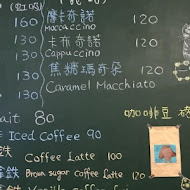 (虹吸)
160 摩卡奇諾 120
Moccaccino
130 卡布奇諾 120
Cappuccino
130 焦糖瑪奇朵 120
130 Caramel Macchiato
ait 80
Iced Coffee 90
咖啡豆
Coffee Latte 100
Brown sugar Coffee Latte 120